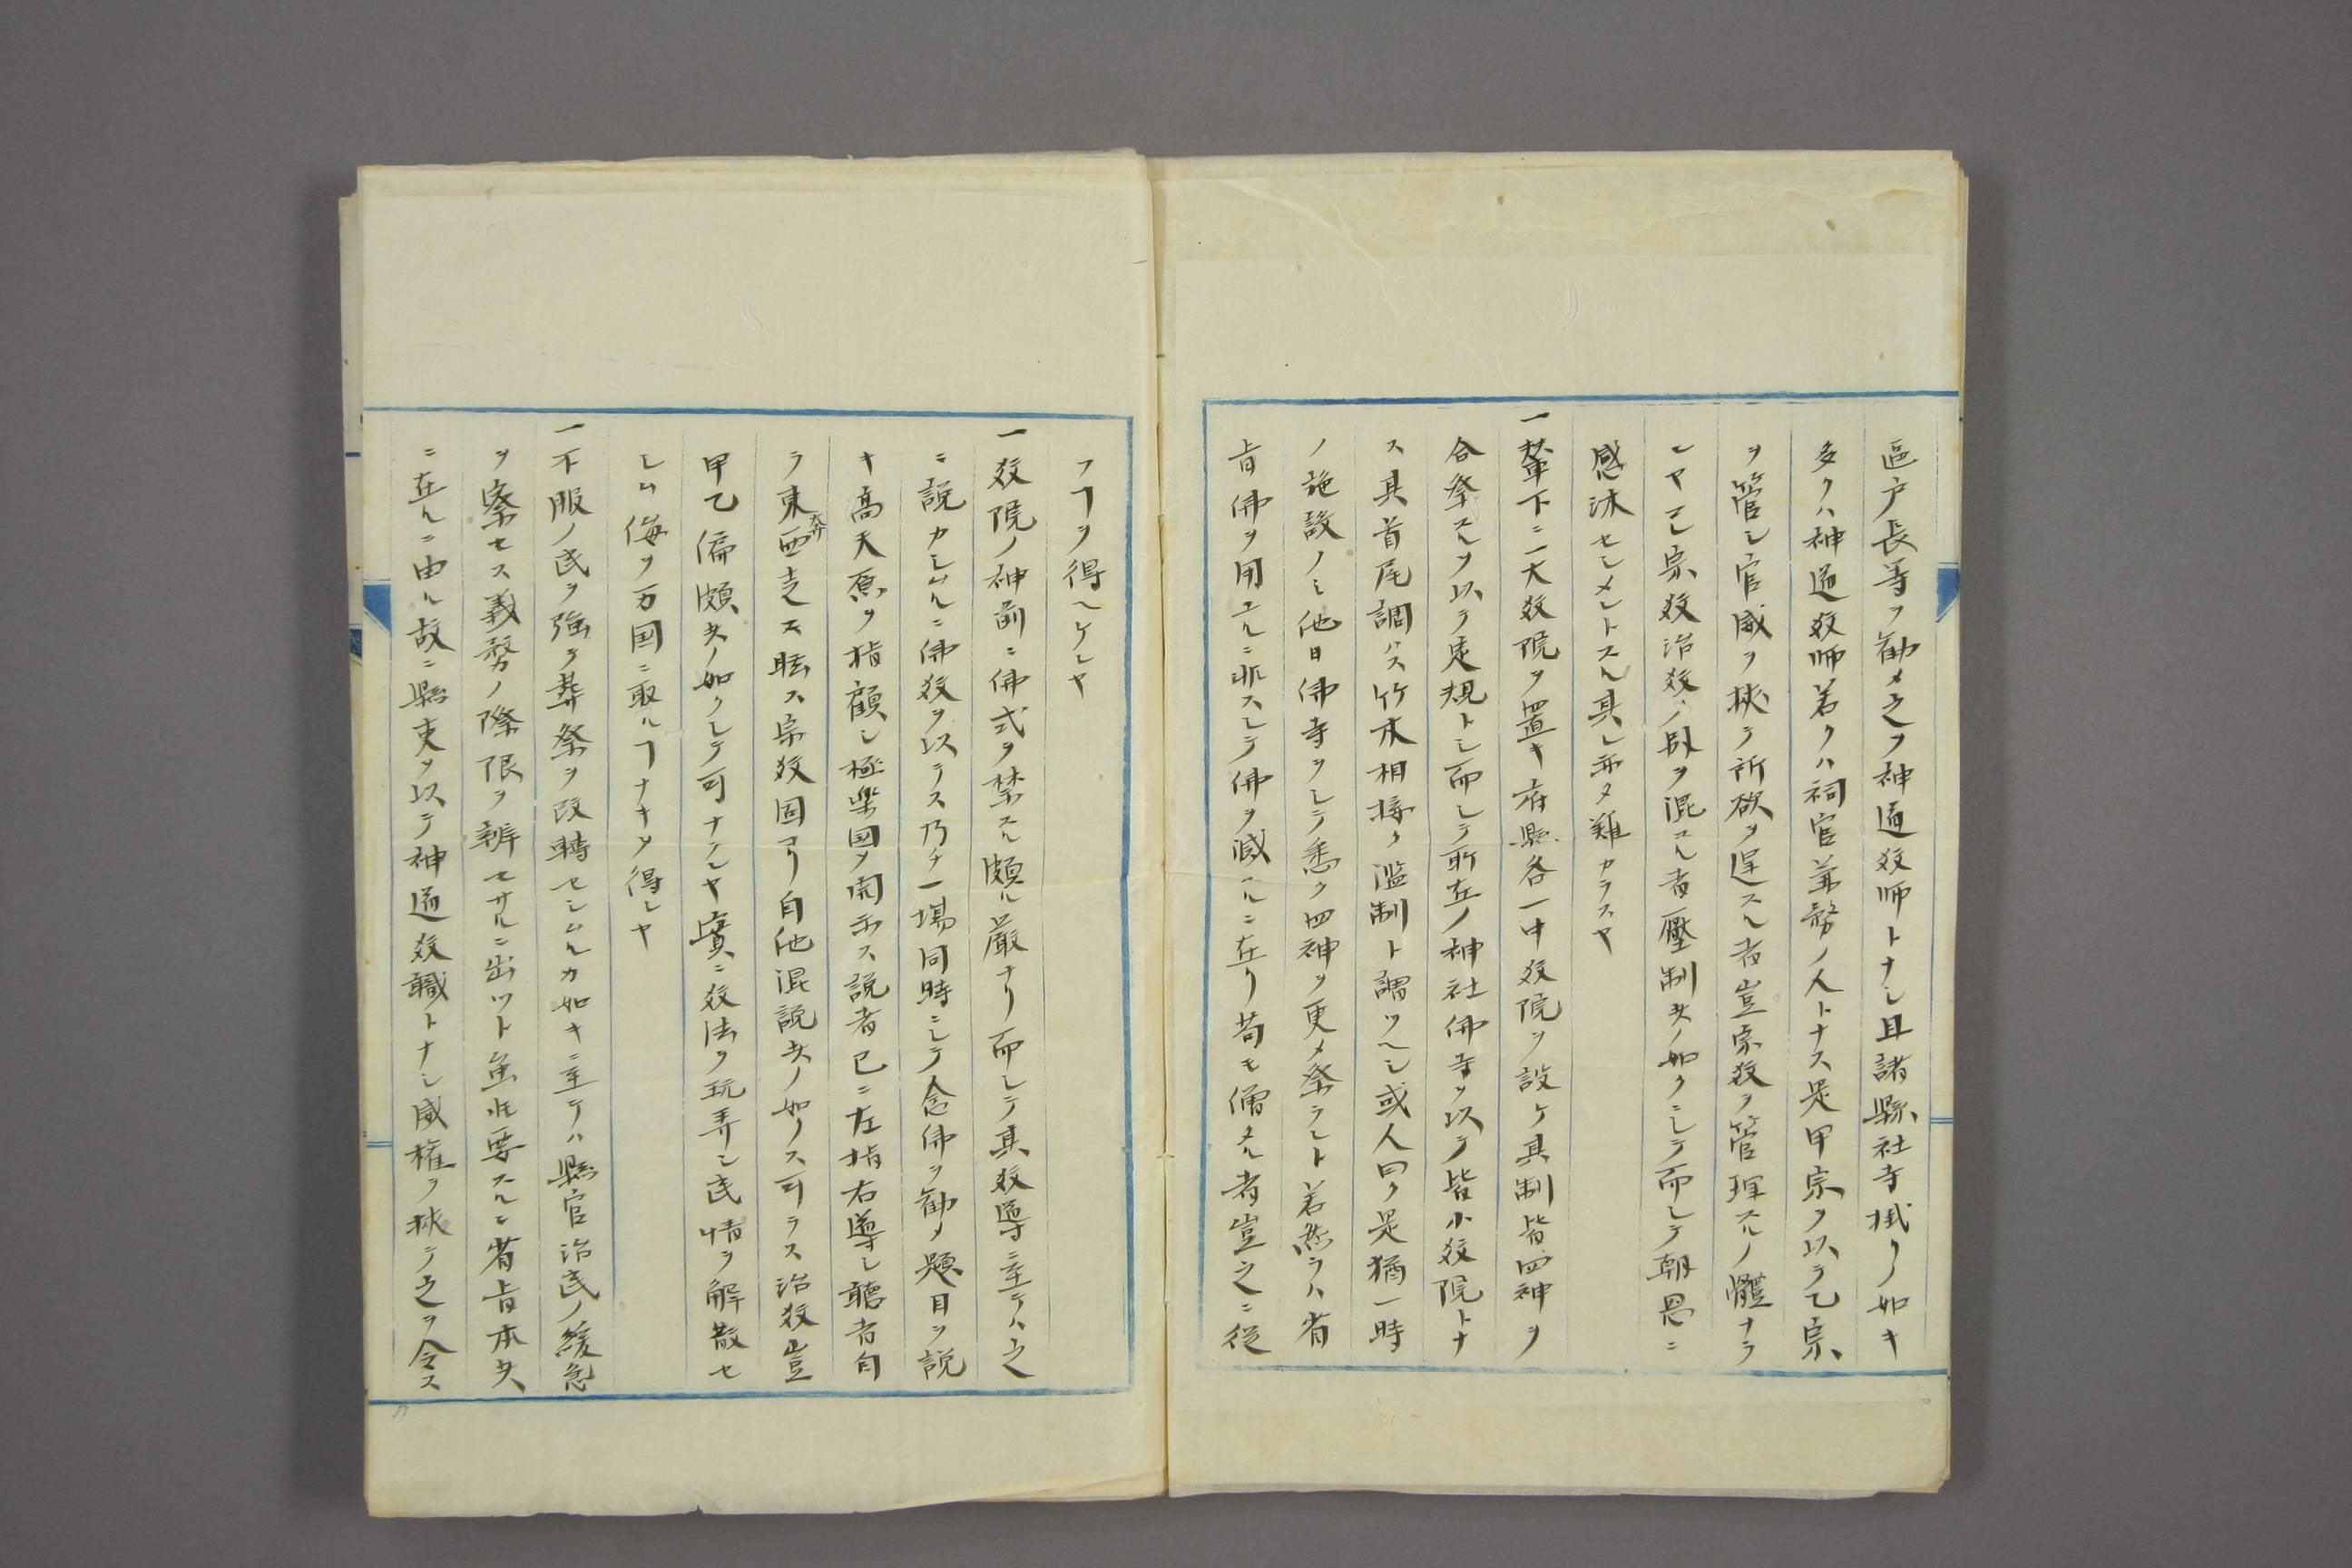 區戸長等ヲ勧メ之ヲ神道敎師トナシ且諸縣社寺掛ノ如キ
多クハ神道敎師若クハ祠官兼務ノ人トナス是甲宗ヲ以テ乙宗
ヲ管シ官威ヲ挾テ所欲ヲ逞スル者豈宗敎ヲ管理スルノ體ナラ
ンヤマヒ宗敎治敎ノ別ヲ混スル者壓制夫ノ如クニシテ而シテ朝恩ニ
感沐セシメントスル其レ亦タ難カラスヤ
一輦下ニ一大敎院ヲ置キ府縣各一中敎院ヲ設ケ其制皆四神ヲ
合祭スルヲ以テ定規トシ而シテ所在ノ神社佛寺ヲ以テ皆小敎院トナ
ス其首尾調ハス竹木相接ク濫制ト謂ツヘシ或人曰ク是猶一時
ノ施設ノミ他日佛寺ヲシテ悉ク四神ヲ更メ祭ラシト若然ラハ省
旨佛ヲ用ユルニ非スシテ佛ヲ滅スルニ在リ苟モ僧タル者豈之ニ從
フヿヲ得ヘケンヤ
一敎院ノ神前ニ佛式ヲ禁スル頗ル嚴ナリ而シテ其敎導ニ至テハ之
ニ説カシムルニ佛敎ヲ以テス乃チ一場同時ニシテ念佛ヲ勧メ題目ヲ説
キ高天原ヲ指顧シ極楽国ヲ開示ス説者已ニ左指右導シ聽者自
ラ東西奔走ス眩ス宗敎固ヨリ自他混説夫ノ如クス可ラス治敎豈
甲乙偏頗夫ノ如クシテ可ナランヤ實ニ敎法ヲ玩弄シ民情ヲ解散セ
シム侮ヲ万国ニ取ルヿナキヲ得ンヤ
一不服ノ民ヲ強テ葬祭ヲ改轉セシムルカ如キニ至テハ縣官治民ノ緩急
ヲ察セス義務ノ際限ヲ辨セサルニ出ツト虽𪜈要スルニ省旨本夫
ニ在ルニ由ル故ニ縣吏ヲ以テ神道敎職トナシ威権ヲ挾テ之ヲ令ス